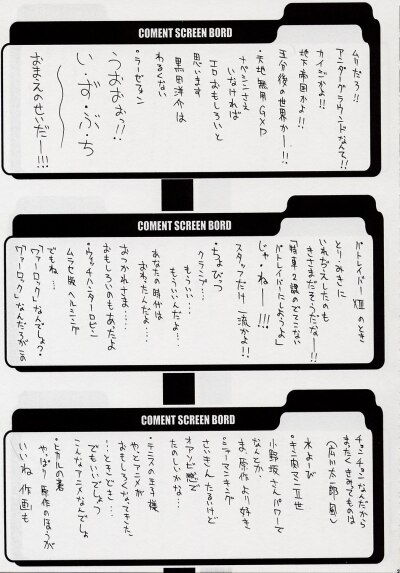 COMENT SCREEN BORD
ムリだろ!!
アンダーグラウンドなんて!!
カイジかよ!!
地下帝国かよ!!
五分後の世界かー!!
・天地無用GXP
ナベシンさえ
いなければ
エロおもしろいと
思います
黒田洋介は
わるくない
・ラーゼフォン
うおおぉっ!!
い・ず・ぶ・ち
おまえのせいだー!!!
COMENT SCREEN BORD
パトレイバー 畑のとき
とり・みきに
いれぢえしたのも
きさまだそうだなー!!
「特車2課のでてこない
パトレイバーにしようよ」
じゃ・ねー!!!
スタッフだけ一流かよ!!
・ちょびっつ
クランプ…
もういい…
もういいんだよ…
あなたの時代は
おわったんだよ…
おつかれさま…
おもしろいのもあったよ
・ウィッチハンターロビン
ムラセ版ヘルシング
でもね…
「ヴァーロック」なんでしょ?
「ヴァーロック」なんだろがこの
COMENT SCREEN BORD
チンチンなんだから
まったくきみってものは
(広川太一郎風)
水よーび
・キン肉マンⅡ世
小野坂さんパワーで
なんとか、
ま、原作より好き
・シャーマンキング
さいきんたるいけど
オアンビ感で
たのしいかな…
・テニスの王子様
やっとアニメが
おもしろくなってきた
…ときどき…
でもいいでしょ
こんなアニメなんでしょ
・ヒカルの碁
やっぱり原作のほうが
いいね 作画も